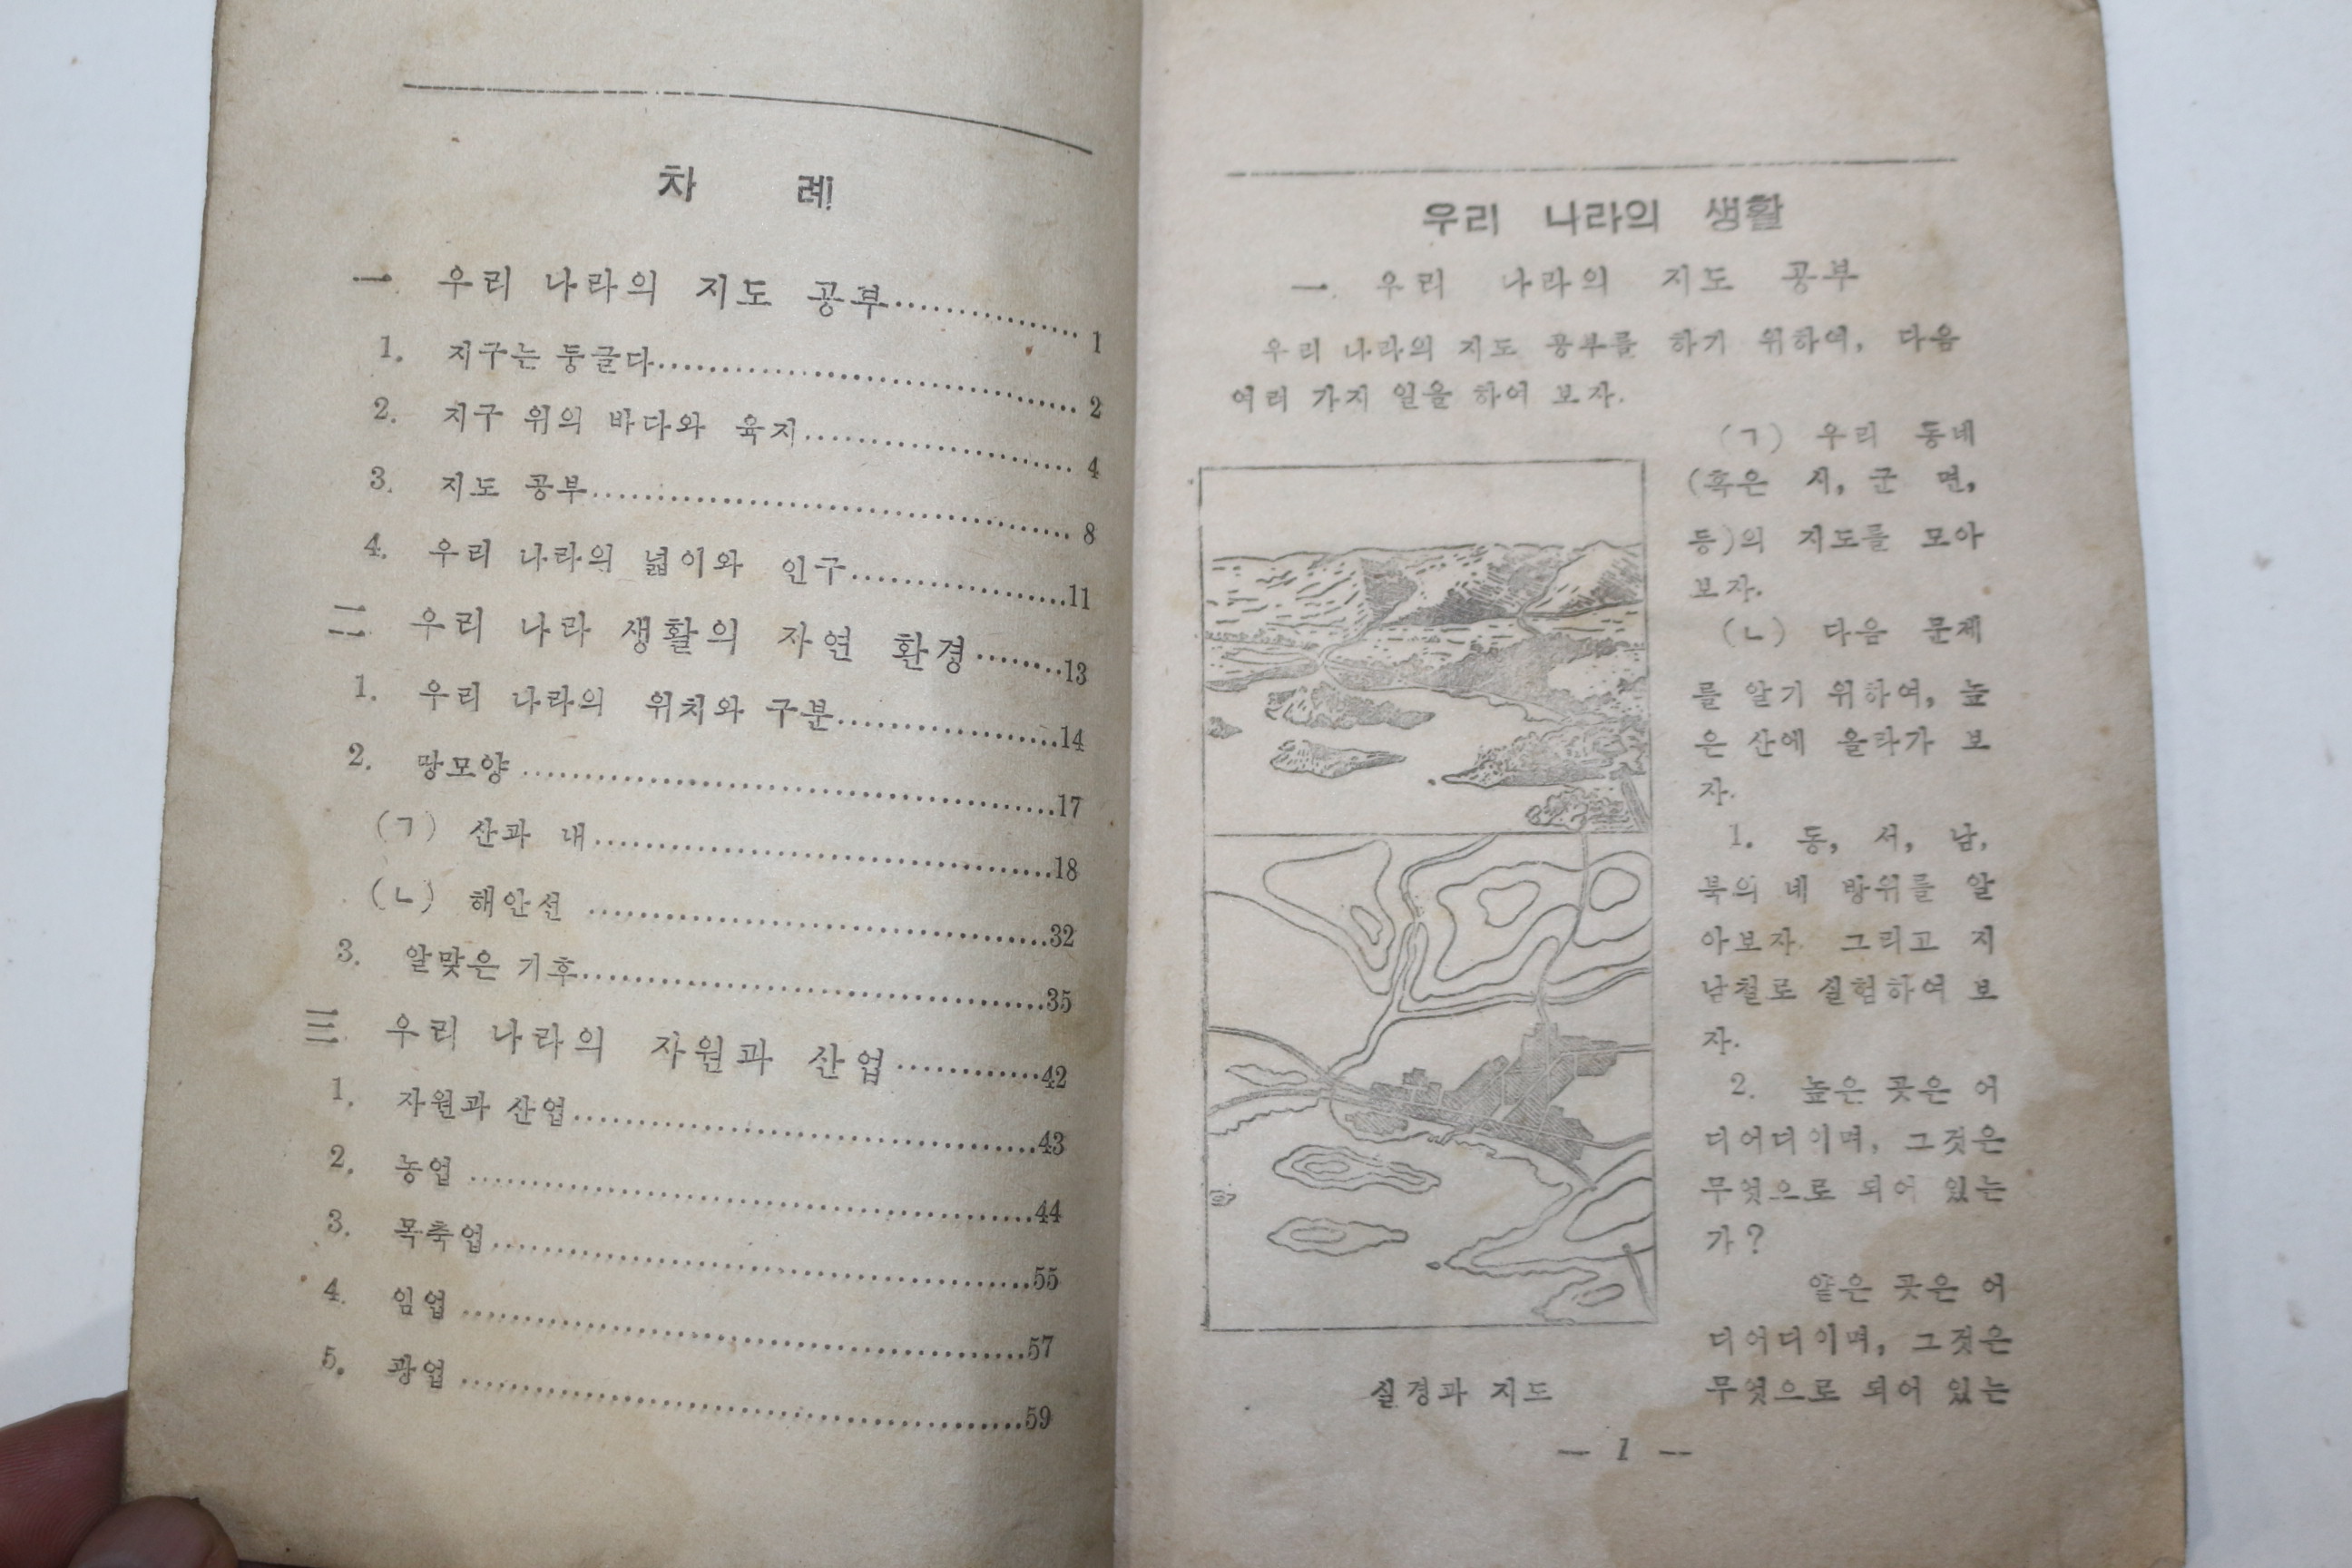 차 례
一 우리 나라의 지도 공부…………1
1. 지구는 둥글다…………2
2. 지구 위의 바다와 육지…………4
3. 지도 공부…………8
4. 우리 나라의 넓이와 인구…………11
二 우리 나라 생활의 자연 환경…………13
1. 우리 나라의 위치와 구분…………14
2. 땅모양…………17
(ㄱ) 산과 내…………18
(ㄴ) 해안선…………32
3. 알맞은 기후…………35
三 우리 나라의 자원과 산업…………42
1. 자원과 산업…………43
2. 농업…………44
3. 목축업…………55
4. 임업…………57
5. 광업…………59
우리 나라의 생활
一. 우리 나라의 지도 공부
우리 나라의 지도 공부를 하기 위하여, 다음
여러 가지 일을 하여 보자.
(ㄱ) 우리 동네
(혹은 시, 군 면,
등)의 지도를 모아
보자.
(ㄴ) 다음 문제
를 알기 위하여, 높
은 산에 올라가 보
자.
1. 동, 서, 남,
북의 네 방위를 알
아보자. 그리고 지
남철로 실험하여 보
자.
2. 높은 곳은 어
디어디이며, 그것은
무엇으로 되어 있는
가?
얕은 곳은 어
디어디이며, 그것은
무엇으로 되어 있는
실경과 지도
— 1 —